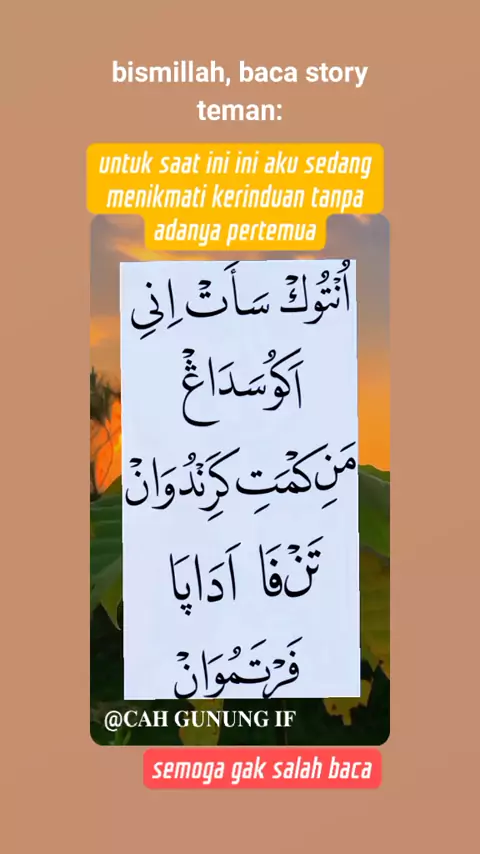 bismillah, baca story
teman:
untuk saat ini ini aku sedang
menikmati kerinduan tanpa
adanya pertemua
اُنْتُوكْ سَأَتْ اِنِي
اَكُوسَدَاڠْ
مَنِ كْمَتِ كَرِنْدُوَانْ
تَنْفَا اَدَاپَا
فَرْتَمُوَانْ
@CAH GUNUNG IF
semoga gak salah baca